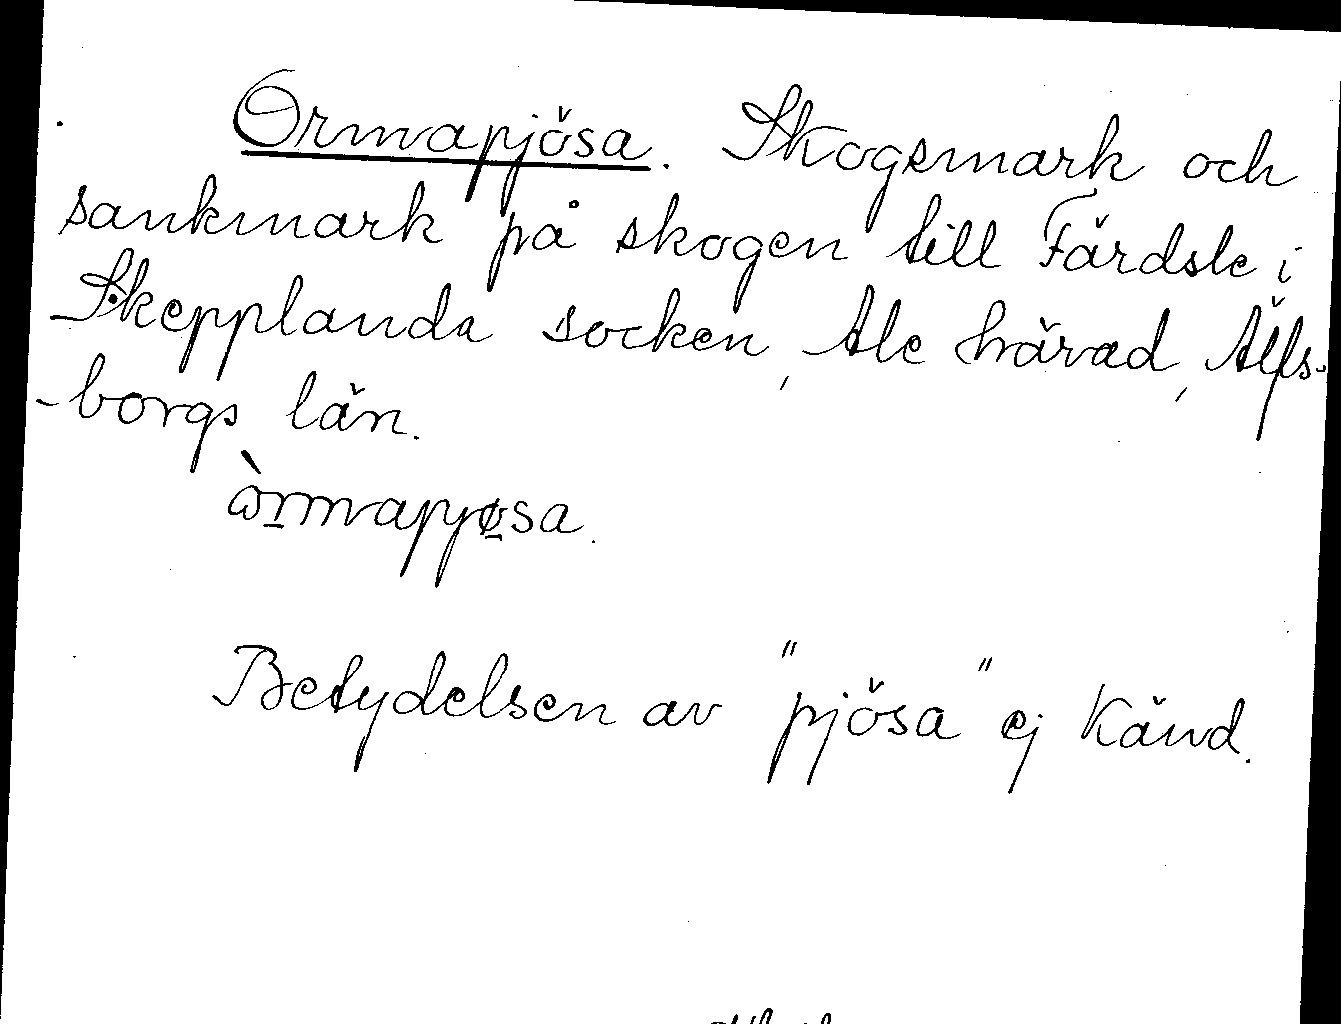 Ormapjösa. Skogsmark och
sankmark på skogen till Färdsle i
Skepplanda socken, Ale härad, Älfs-
-borgs län.
ò̱rmapjø̱sa.
Betydelsen av "pjösa" ej känd.